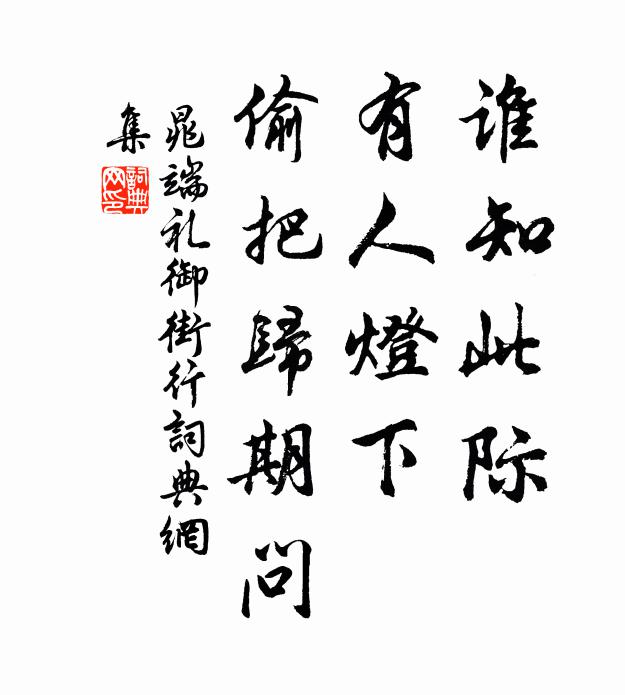 谁知此际
有人燈下
偷把歸期問
晁端礼御街行詞典網
集
詞典
网印